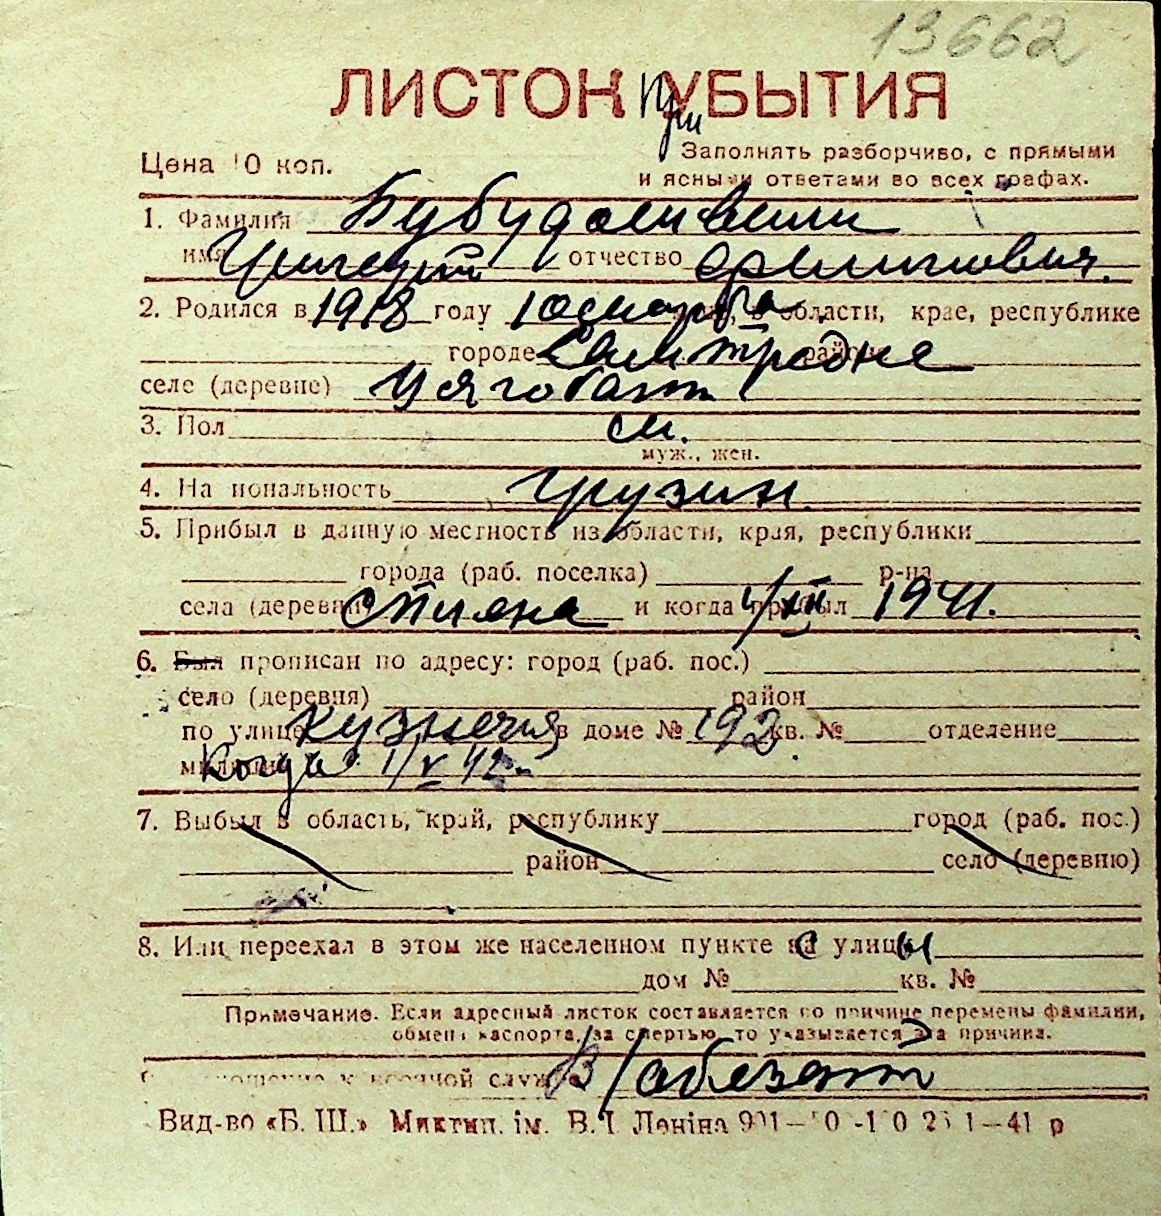 13662
ЛИСТОК При УБЫТИЯ
Цена 10 коп.
Заполнять разборчиво, с прямыми
и ясными ответами во всех графах.
1. Фамилия
имя Григорий отчество
2. Родился в 1918 году 1 января, в области, крае, республике
городе Самтредне район
селе (деревне)
3. Пол м.
муж., жен.
4. Национальность грузин.
5. Прибыл в данную местность из области, края, республики
города (раб. поселка) р-на
села (деревни) и когда прибыл 1/XII 1941.
6. Был прописан по адресу: город (раб. пос.)
село (деревня) район
по улице Кузнечная в доме № 192 кв. № отделение
милиции Когда 1/V 42 г.
7. Выбыл в область, край, республику город (раб. пос.)
район село (деревню)
8. Или переехал в этом же населенном пункте с улицы
дом № кв. №
Примечание. Если адресный листок составляется по причине перемены фамилии,
обмена паспорта, за смертью, то указывается эта причина.
отношение к военной службе В/обязат
Вид-во «Б. Ш.» Миктип. ім. В. І. Леніна